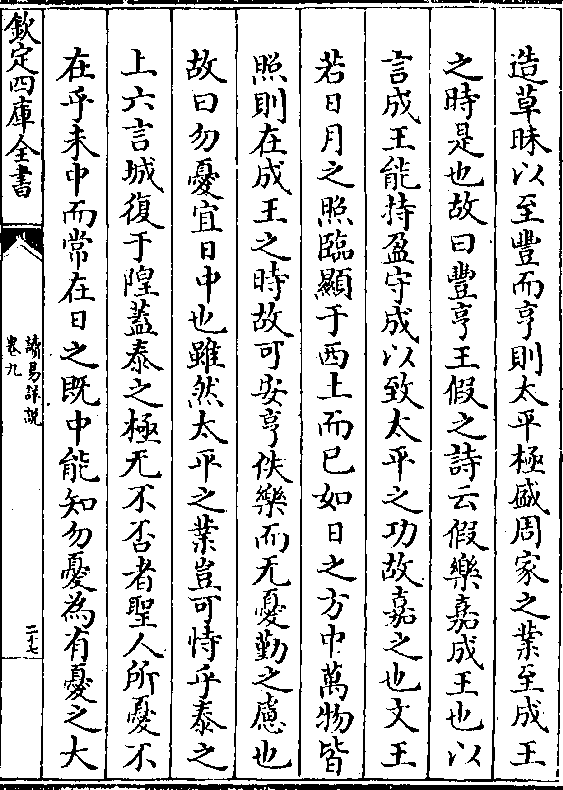 造草昧以至豐而亨則太平極盛周家之業至成王
之時是也故曰豐亨王假之詩云假樂嘉成王也以
言成王能持盈守成以致太平之功故嘉之也文王
若日月之照臨顯于西土而已如日之方中萬物皆
照則在成王之時故可安亨佚樂而无憂勤之慮也
故曰勿憂宜日中也雖然太平之業豈可恃乎泰之
上六言城復于隍蓋泰之極无不否者聖人所憂不
在乎未中而常在日之既中能知勿憂為有憂之大
欽定四庫全書
讀易詳說
卷九
二十七